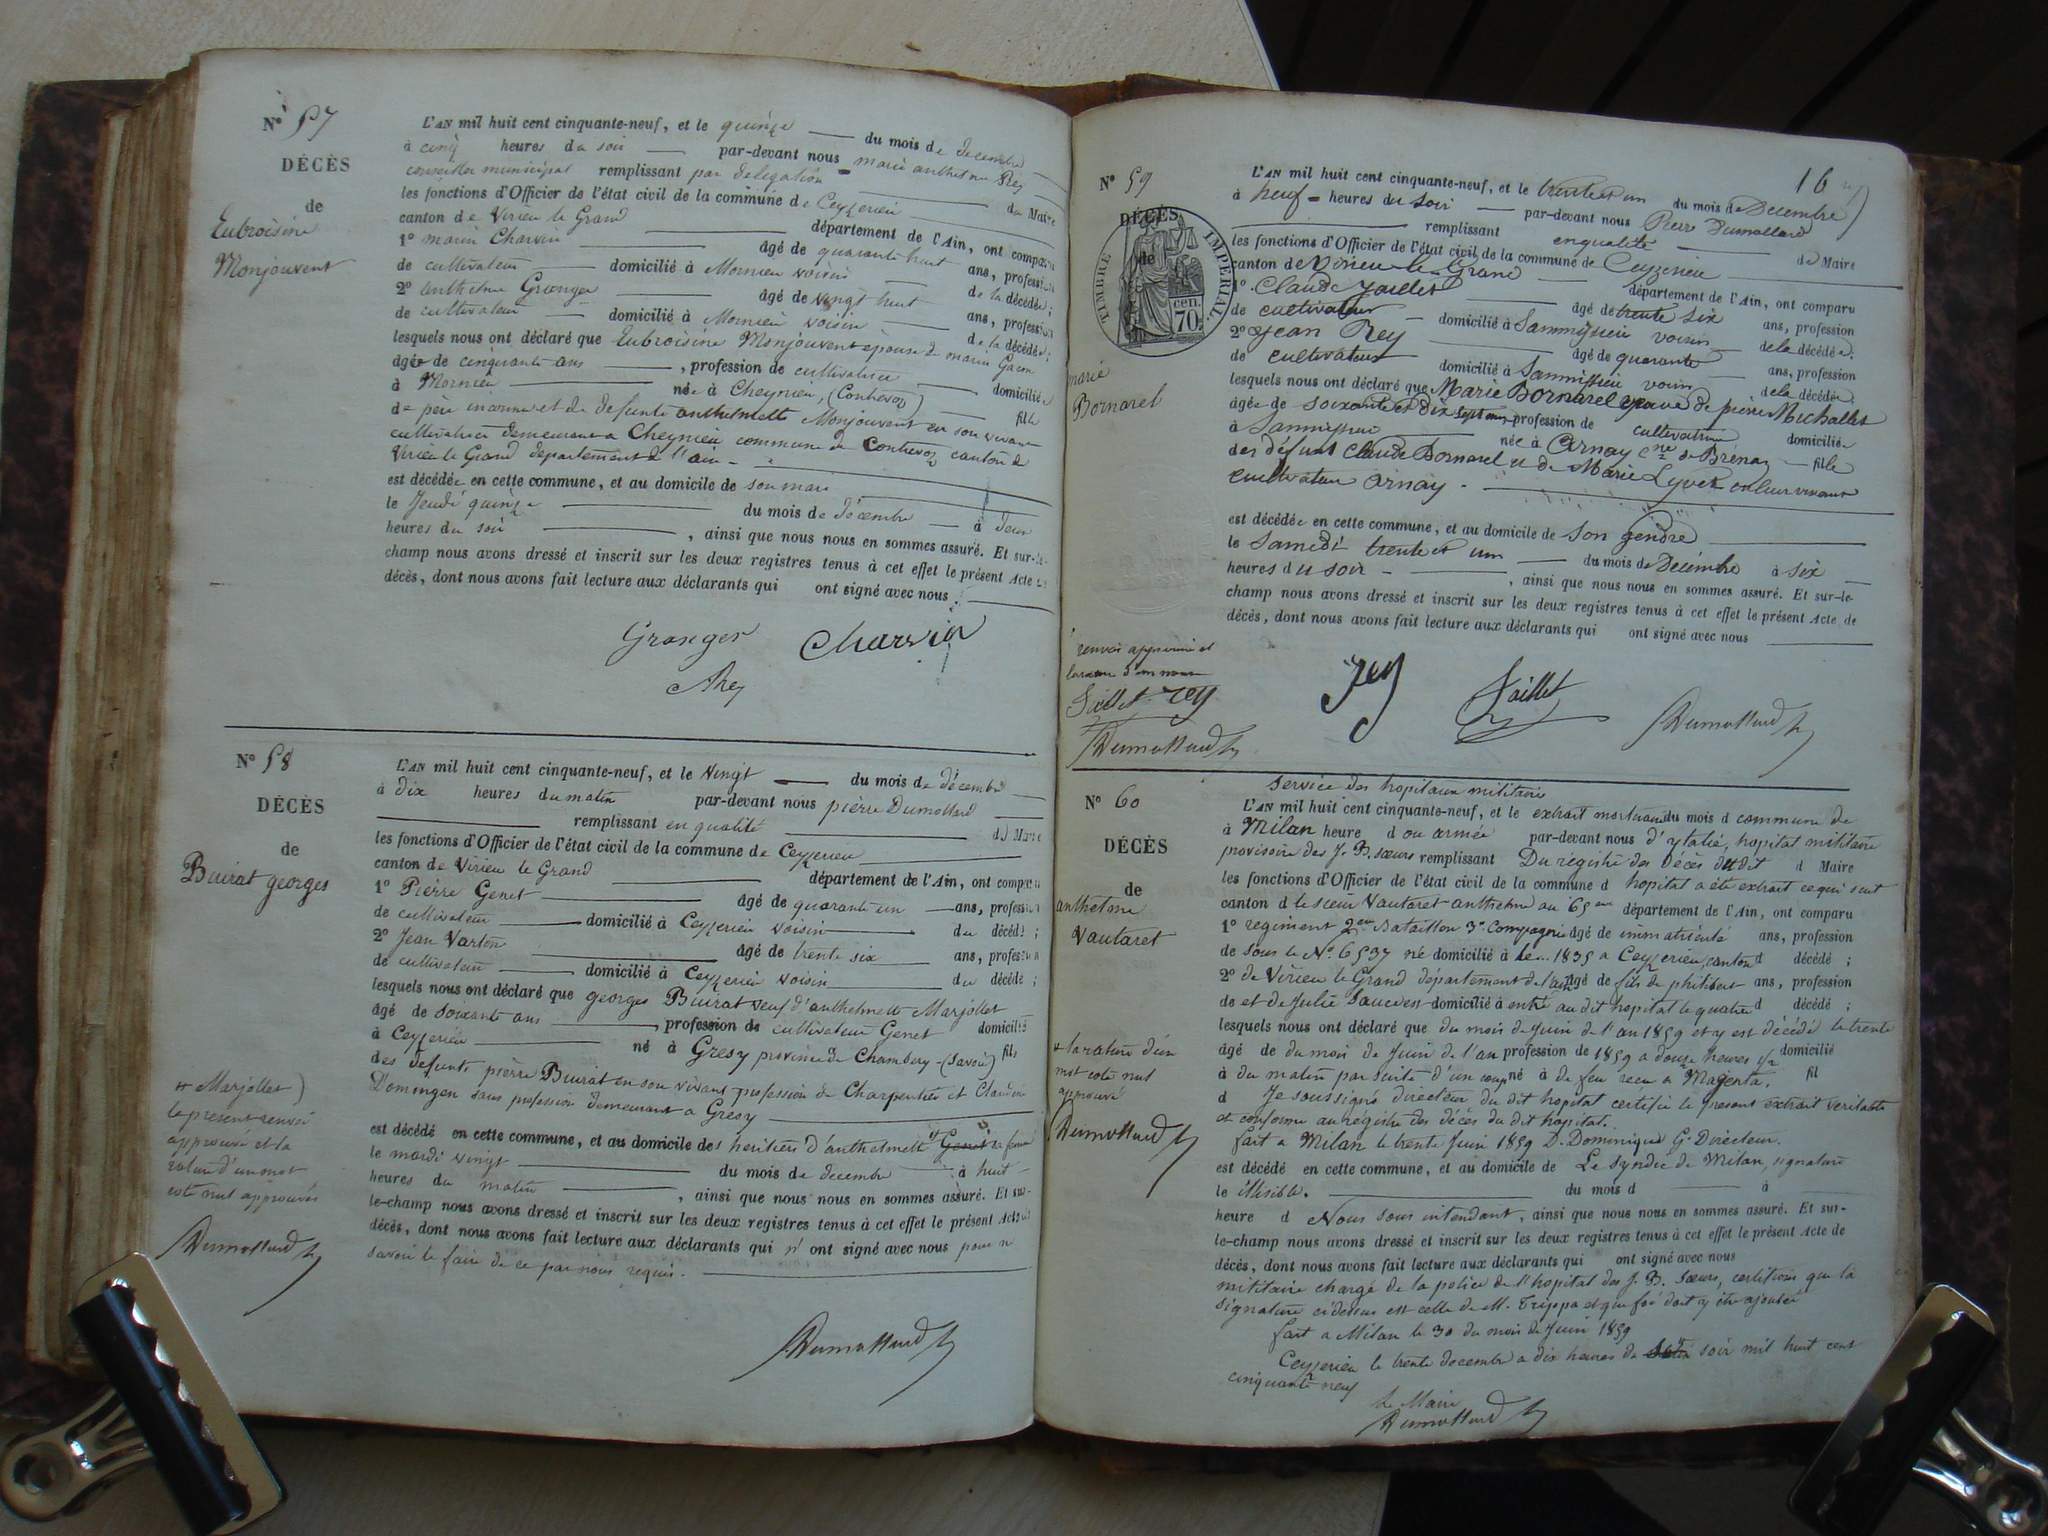 N° 57
DÉCÈS
de
Eubroisine
Monjouvent
L'AN mil huit cent cinquante-neuf, et le quinze du mois de decembre
à cinq heures du soir par-devant nous marie anthelme Rey
conseiller municipal remplissant par delegation
les fonctions d'Officier de l'état civil de la commune de Ceyzerieu du Maire
canton de Virieu le Grand département de l'Ain, ont comparu
1° marin Charvin âgé de quarante huit ans, profession
de cultivateur domicilié à Mornieu voisin de la décédée ;
2° anthelme Granger âgé de vingt huit ans, profession
de cultivateur domicilié à Mornieu voisin de la décédée ;
lesquels nous ont déclaré que Eubroisine Monjouvent épouse d marin Gacon
âgée de cinquante ans , profession de cultivatrice domiciliée
à Mornieu née à Cheynieu, (Contrevoz) fille
de père inconnu et de defunte anthelmette Monjouvent en son vivant
cultivatrice demeurant a Cheynieu commune de Contrevoz canton de
Virieu le Grand departement de l'ain
est décédée en cette commune, et au domicile de son mari
le Jeudi quinze du mois de décembre à deux
heures du soir , ainsi que nous nous en sommes assuré. Et sur-le-
champ nous avons dressé et inscrit sur les deux registres tenus à cet effet le présent Acte de
décès, dont nous avons fait lecture aux déclarants qui ont signé avec nous.
Granger Charvin
Rey
N° 58
DÉCÈS
de
Buirat georges
L'AN mil huit cent cinquante-neuf, et le vingt du mois de décembre
à dix heures du matin par-devant nous pièrre Dumollard
remplissant en qualité du Maire
les fonctions d'Officier de l'état civil de la commune de Ceyzerieu
canton de Virieu le Grand département de l'Ain, ont comparu
1° Pièrre Genet âgé de quarante un ans, profession
de cultivateur domicilié à Ceyzerieu voisin du décédé ;
2° Jean Varton âgé de trente six ans, profession
de cultivateur domicilié à Ceyzerieu voisin du décédé ;
lesquels nous ont déclaré que georges Buirat veuf d'anthelmette Marjollet
âgé de soixante ans , profession de cultivateur Genet domicilié
à Ceyzerieu né à Gresy province de Chambery (Savoie) fils
des defunts pièrre Buirat en son vivant profession de Charpentier et Claudine
Domingen sans profession demeurant a Gresy
est décédé en cette commune, et au domicile des heritiers d'anthelmette Genet sa femme
le mardi vingt du mois de decembre à huit
heures du matin , ainsi que nous nous en sommes assuré. Et sur-
le-champ nous avons dressé et inscrit sur les deux registres tenus à cet effet le présent Acte de
décès, dont nous avons fait lecture aux déclarants qui n' ont signé avec nous pour ne
savoir le faire de ce par nous requis.
Marjollet)
le present renvoi
approuvé et la
rature d'un mot
coté nul approuvés
Dumollard
Dumollard
16
N° 59
DÉCÈS
de
TIMBRE IMPERIAL
70 cen.
marie
Bornarel
L'AN mil huit cent cinquante-neuf, et le trente et un du mois de Decembre
à neuf heures du soir par-devant nous Pierre Dumollard
remplissant en qualité de Maire
les fonctions d'Officier de l'état civil de la commune de Ceyzerieu
canton de Virieu-le-Grand département de l'Ain, ont comparu
1° Claude Jaillet âgé de trente six ans, profession
de cultivateur domicilié à Sammissieu voisin de la décédée ;
2° Jean Rey âgé de quarante ans, profession
de cultivateur domicilié à Sammissieu voisin de la décédée ;
lesquels nous ont déclaré que Marie Bornarel veuve de pierre Michallet
âgée de soixante et dix sept ans, profession de cultivatrice domiciliée
à Sammissieu née à Arnay Cne de Brenaz fille
des défunt Claude Bornarel et de Marie Lyvet en leur vivant
cultivateur arnay.
est décédée en cette commune, et au domicile de son gendre
le Samedi trente et un du mois de Décembre à six
heures du soir , ainsi que nous nous en sommes assuré. Et sur-le-
champ nous avons dressé et inscrit sur les deux registres tenus à cet effet le présent Acte de
décès, dont nous avons fait lecture aux déclarants qui ont signé avec nous
renvoi approuvé et
Jaillet Rey
Dumollard
Rey Jaillet Dumollard
service des hopitaux militaire
N° 60
DÉCÈS
de
anthelme
Vautaret
L'AN mil huit cent cinquante-neuf, et le extrait mortuaire du mois d commune de
à Milan heure d ou armée par-devant nous d'ytalie, hopital militaire
provisoire des f. B. sœurs remplissant Du registre des décès du dit d Maire
les fonctions d'Officier de l'état civil de la commune d hopital a été extrait ce qui suit
canton d le sieur Vautaret anthelme au 65eme département de l'Ain, ont comparu
1° regiment 2eme Bataillon 3e Compagnie âgé de immatriculé ans, profession
de sous le No 6537 né domicilié à le... 1835 a Ceyzerieu, canton d décédé ;
2° de Virieu le Grand département de l'ain âgé de fils de philibert ans, profession
de et de Julie Saucen domicilié à entré au dit hopital le quatre d décédé ;
lesquels nous ont déclaré que du mois de Juin de l'an 1859 et y est décédé le trente
âgé de du mois de Juin de l'an profession de 1859 a douze heures domicilié
à du matin par suite d'un coup né à de feu recu a Magenta. fil
d Je soussigné directeur du dit hopital certifie le present extrait veritable
et conforme au régistre des décès du dit hopital.
fait a Milan le trente Juin 1859 D. Dominique G. Directeur.
est décédé en cette commune, et au domicile de Le Syndic de Milan, signature
le illisible. du mois d à
heure d Nous sous intendant, ainsi que nous nous en sommes assuré. Et sur-
le-champ nous avons dressé et inscrit sur les deux registres tenus à cet effet le présent Acte de
décès, dont nous avons fait lecture aux déclarants qui ont signé avec nous
militaire chargé de la police de l'hopital des f. B. sœurs, certifions que la
signature cidessus est celle de M. Trippa et que foi doit y être ajoutée
fait a Milan le 30 du mois de Juin 1859
Ceyzerieu le trente decembre a dix heures du soir mil huit cent
cinquante neuf
le Maire
Dumollard
la rature d'un
mot coté nul
approuvé
Dumollard